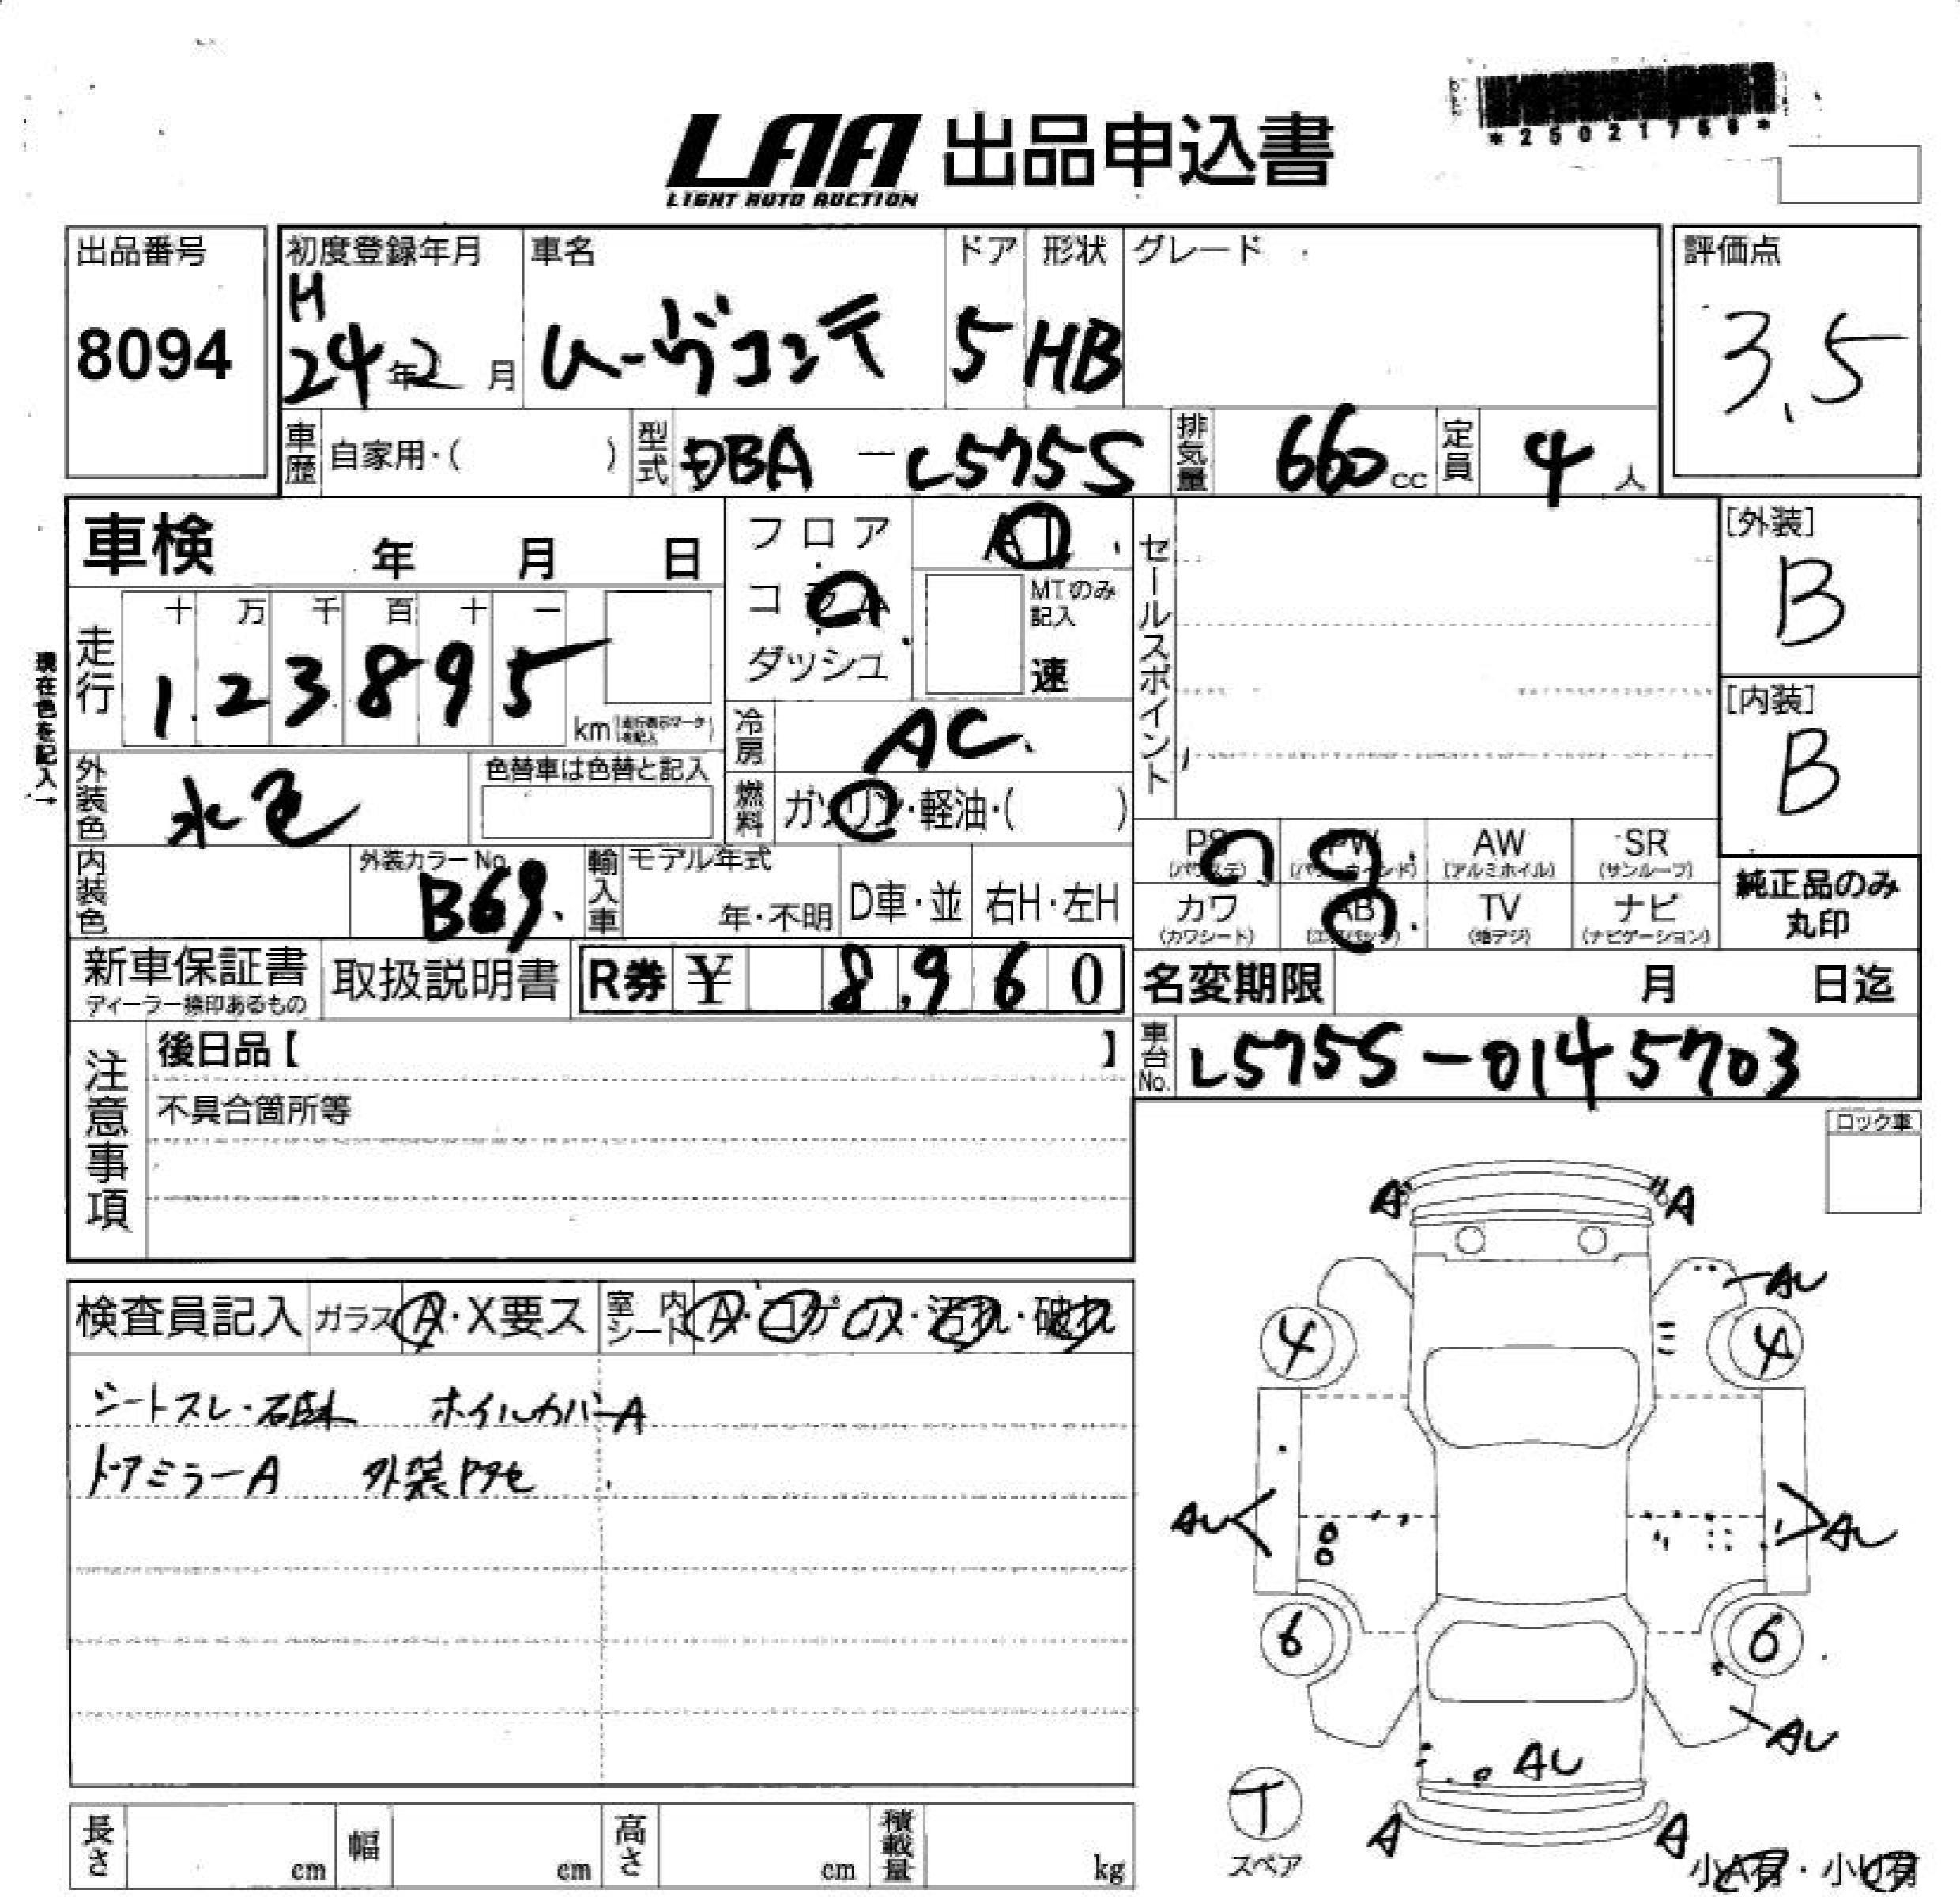 *25021756*
LAA 出品申込書
LIGHT AUTO AUCTION
出品番号
8094
初度登録年月
H
24年2月
車名
ムーヴコンテ
ドア
5
形状
HB
グレード
評価点
3.5
車歴 自家用・( )
型式 DBA-L575S
排気量 660cc
定員 4人
車検 年 月 日
フロア
コラム
ダッシュ
AT
MTのみ記入
速
セールスポイント
[外装]
B
[内装]
B
現在色を記入→
走行
十 万 千 百 十 一
1 2 3 8 9 5
km
冷房 AC
外装色 水色
色替車は色替と記入
燃料 ガソリン・軽油・( )
内装色
外装カラーNo.
B69
輸入車
モデル年式
年・不明
D車・並
右H・左H
PS
(パワステ)
PW
(パワーウインド)
AW
(アルミホイル)
SR
(サンルーフ)
カワ
(カワシート)
AB
(エアバッグ)
TV
(地デジ)
ナビ
(ナビゲーション)
純正品のみ
丸印
新車保証書
ディーラー捺印あるもの
取扱説明書
R券 ¥ 8,960
名変期限 月 日迄
注意事項
後日品【 】
不具合箇所等
車台No. L575S-0145703
ロック車
検査員記入 ガラス A・X要ス
室内シート A・コゲ・穴・汚れ・破れ
シートスレ・ ホイルカバーA
ドアミラーA 外装アクセ
A A
AU
4 4
AU AU
6 6
AU
AU
T
スペア
A A
小A有・小U有
長さ cm
幅 cm
高さ cm
積載量 kg